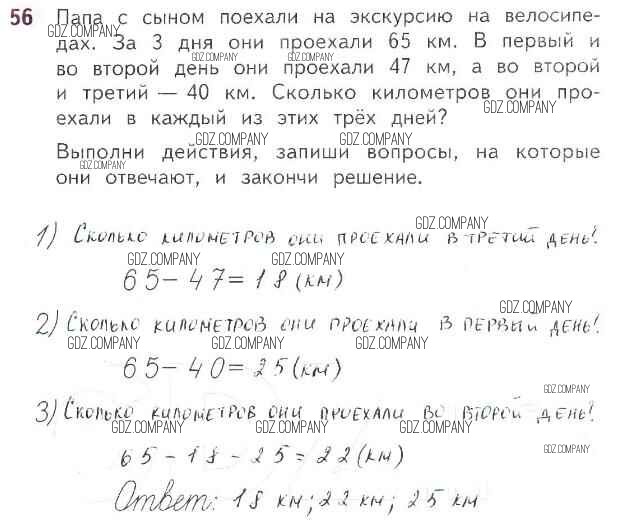 56 Папа с сыном поехали на экскурсию на велосипе-
GDZ.COMPANY GDZ.COMPANY GDZ.COMPANY
дах. За 3 дня они проехали 65 км. В первый и
GDZ.COMPANY GDZ.COMPANY
во второй день они проехали 47 км, а во второй
и третий — 40 км. Сколько километров они про-
GDZ.COMPANY
ехали в каждый из этих трёх дней?
GDZ.COMPANY GDZ.COMPANY
Выполни действия, запиши вопросы, на которые
GDZ.COMPANY
они отвечают, и закончи решение.
GDZ.COMPANY
1) Сколько километров они проехали в третий день?
GDZ.COMPANY GDZ.COMPANY GDZ.COMPANY
65-47=18 (км)
GDZ.COMPANY
2) Сколько километров они проехали в первый день?
GDZ.COMPANY GDZ.COMPANY GDZ.COMPANY
65-40=25 (км)
GDZ.COMPANY
3) Сколько километров они проехали во второй день?
GDZ.COMPANY GDZ.COMPANY GDZ.COMPANY
65-18-25=22 (км)
GDZ.COMPANY
Ответ: 18 км; 22 км; 25 км
GDZ.COMPANY GDZ.COMPANY